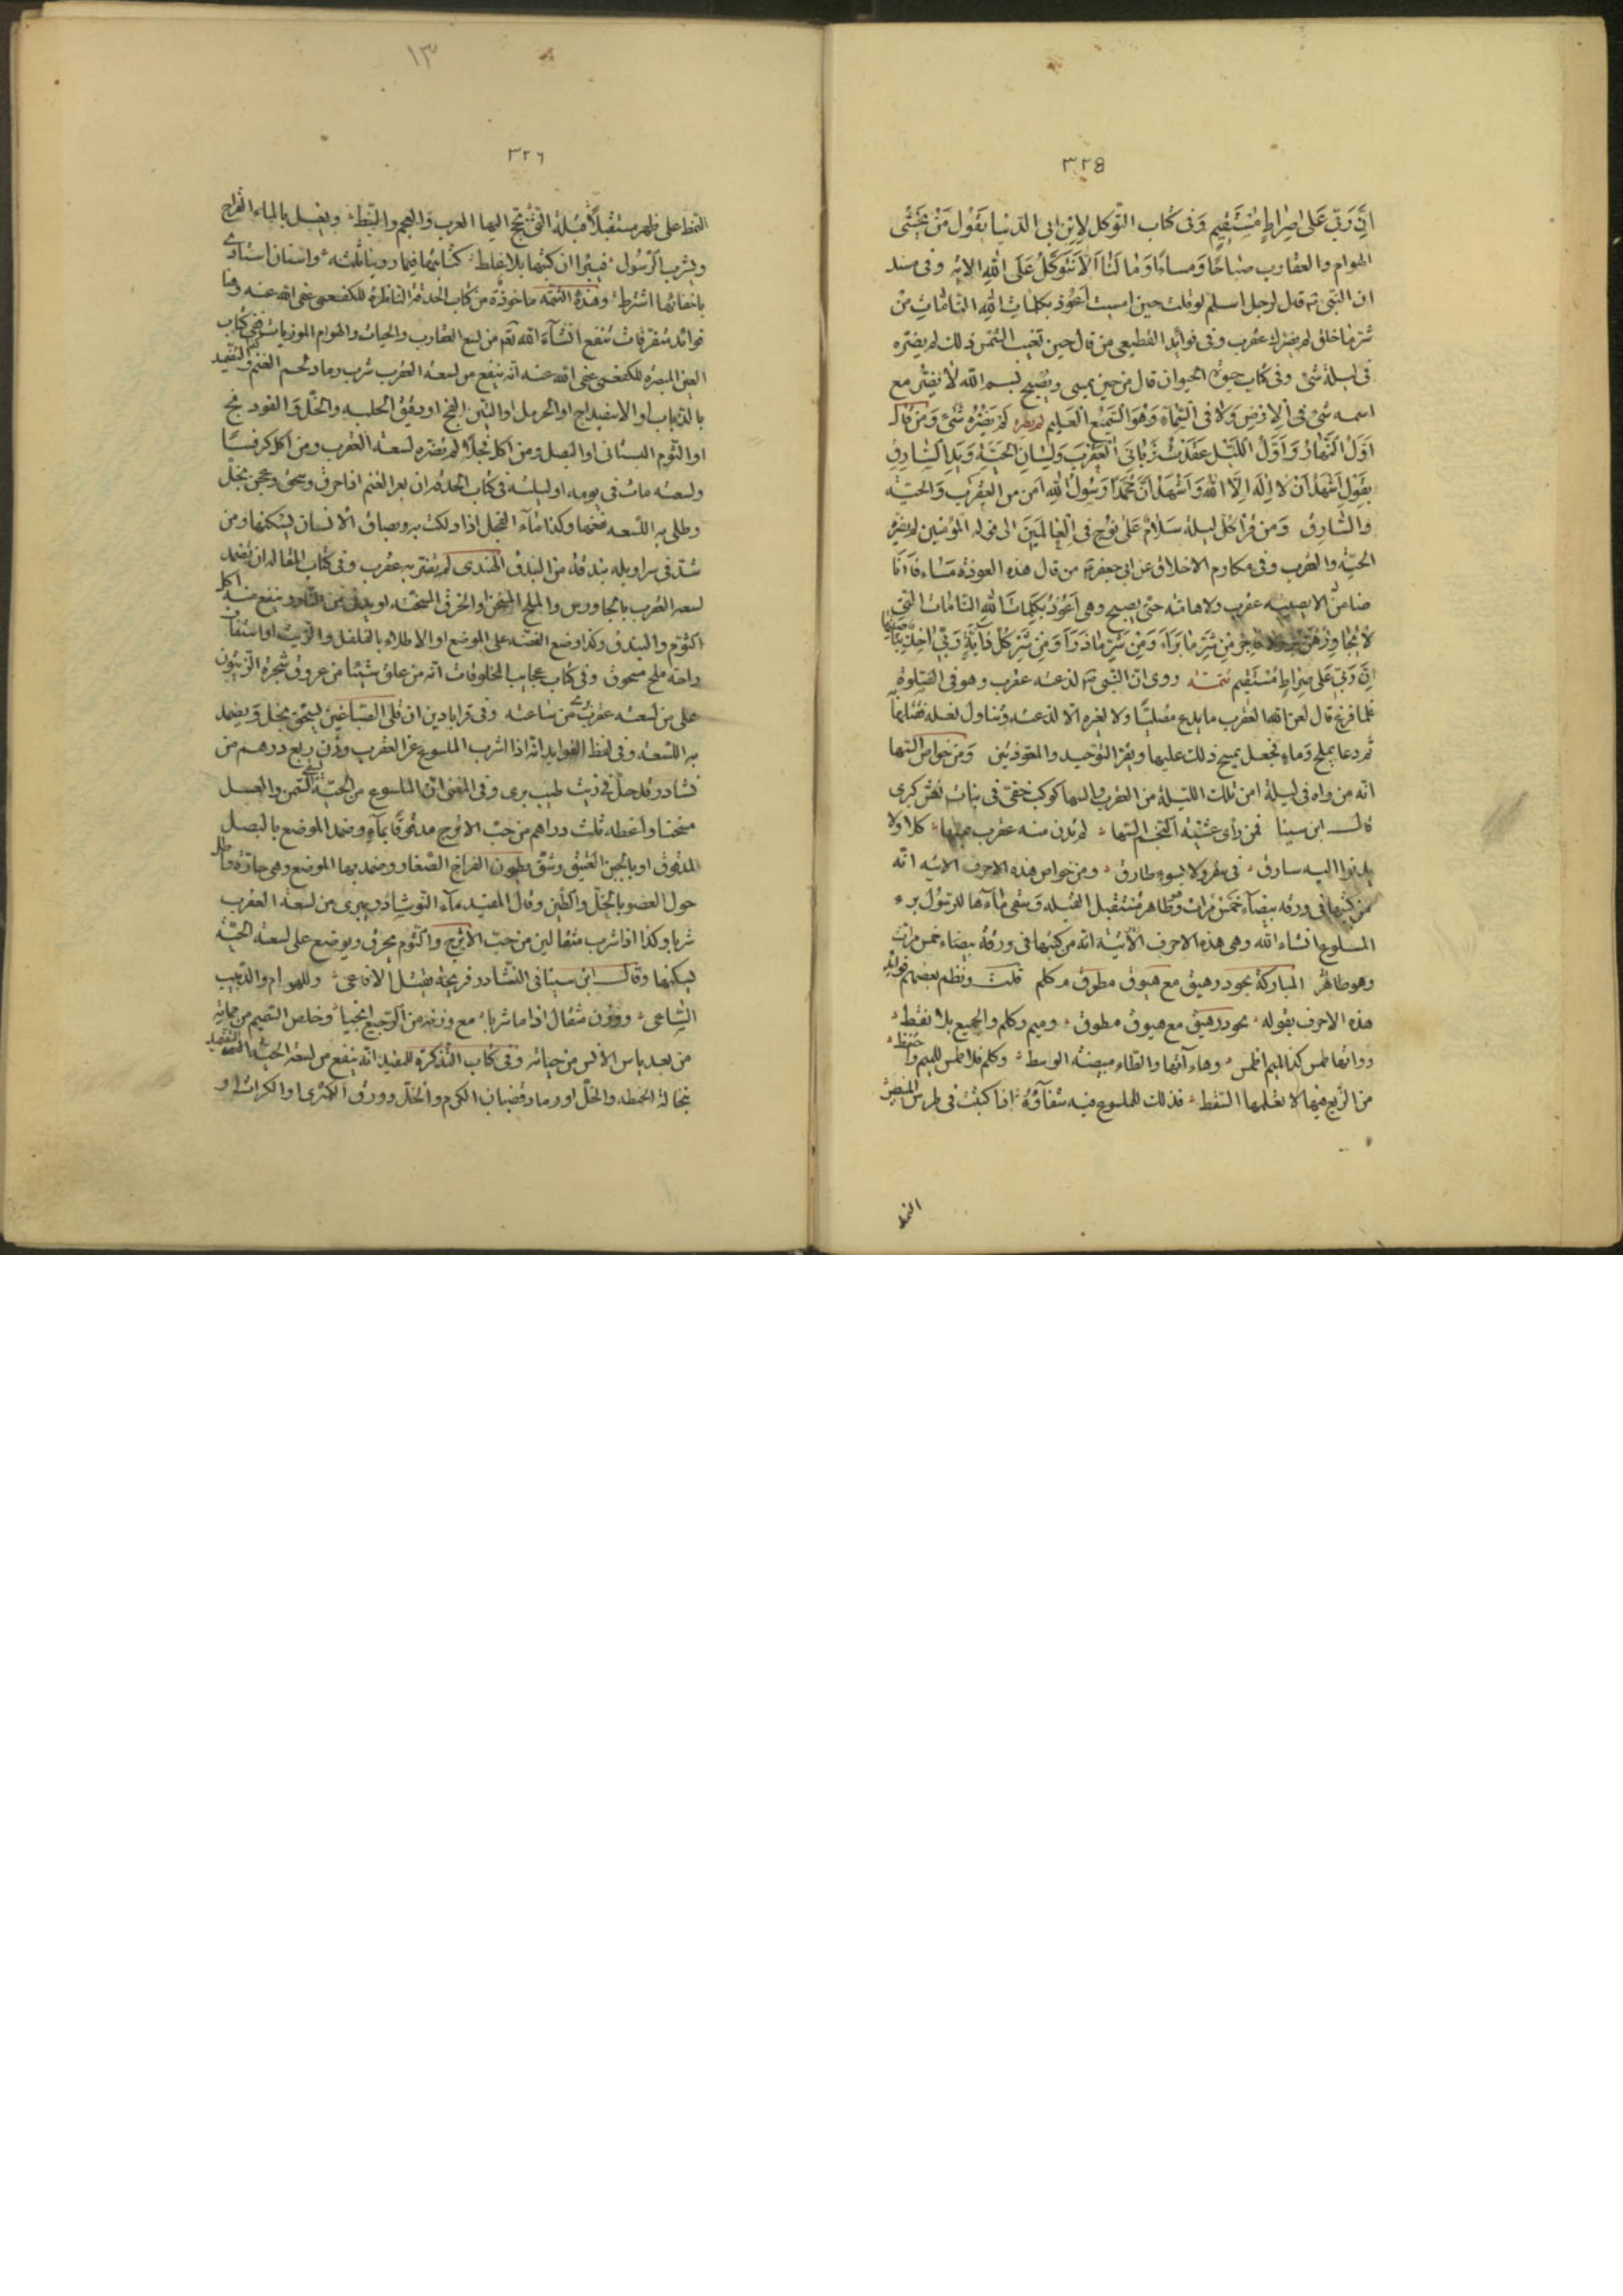 ٣٢٥
ان ربي على صراط مستقيم وفى كتاب التوكل لابن ابى الدنيا يقول من يخشى
الهوام والعقارب صباحا ومساء وما لنا الا نتوكل على الله الاية وفى مسند
ان النبى قال لرجل اسلم لو قلت حين امسيت اعوذ بكلمات الله التامات من
شر ما خلق لم يضرك عقرب وفى فوائد القطيعى من قال حين تغيب الشمس ذلك لم يضره
فى ليلة شئ وفى كتاب حيوة الحيوان قال من حين يمسى ويصبح بسم الله لا يضر مع
اسمه شئ فى الارض ولا فى السماء وهو السميع العليم لم يضره شئ ومن قال
اول النهار واول الليل عقدت زبانى العقرب ولسان الحية ويد السارق
بقول اشهد ان لا اله الا الله واشهد ان محمدا رسول الله امن من العقرب والحية
والسارق ومن قرا كل ليلة سلام على نوح فى العالمين الى قوله المؤمنين لم يضره
الحية والعقرب وفى مكارم الاخلاق عن ابى جعفر من قال هذه العوذة مساء فانا
ضامن الا يصيبه عقرب ولا هامة حتى يصبح وهى اعوذ بكلمات الله التامات التى
لا يجاوزهن بر ولا فاجر من شر ما براء ومن شر ما ذراء ومن شر كل دابة ربى اخذ بناصيتها
ان ربى على صراط مستقيم تتمة روى ان النبى لذعته عقرب وهو فى الصلوة
فلما فرغ قال لعن الله العقرب ما يدع مصليا ولا لغيره الا لذعته وتناول نعله فقتلها
ثم دعا بملح وماء فجعل يمسح ذلك عليها ويقرء التوحيد والمعوذتين ومن خواص السها
انه من راه فى ليلة امن تلك الليلة من العقرب والسها كوكب خفى فى بنات نعش كبرى
قال ابن سينا فمن راى عشية النجم السها لم تدن منه عقرب كلا ولا
يدنو اليه سارق فى سفر ولا بسوء طارق ومن خواص هذه الاحرف الاتية انه
من كتبها فى ورقة بيضاء خمس مرات وطاهر مستقبل القبلة وسقى ماءها للرسول برء
الملسوع انشاء الله وهى هذه الاحرف الاتية انه من كتبها فى ورقة بيضاء خمس مرات
وهو طاهر المباركة بحود رهيق مع هيوق مطوق م كلم قلت ونظم بعضهم فوائد
هذه الاحرف بقوله بحود رهيق مع هيوق مطوق وميم وكلم والجميع بلا نقط
من الربع فيها لا تعلمها النقط فذلك للملسوع فيه شفاؤه اذا كتبت فى طرس
النمط
١٣
٣٢٦
النمط على ظهر مستقبلا قبلة التى تحج اليها العرب والعجم والنبط ويغسل بالماء القراح
ويشرب الرسول فيبرا ان كتبها بلا غلط كتابتها فيما روينا ثلثة واستان استادى
باخفائها اشترط وهذه التتمة ماخوذة من كتاب الحدقة الناظرة للكفعمى عفى الله عنه وهنا
فوائد متفرقات تنفع انشاء الله تعم من لسع العقارب والحيات والهوام الموذيات ففى كتاب
العين المبصرة للكفعمى عفى الله عنه انه ينفع من لسعة العقرب شرب رماد لحم الغنم والتضميد
بالذباب او الاسفيداج او الحرمل او التين الفج او دقيق الحلبة والخل والفودنج
او الثوم البستانى او البصل ومن اكل فجلا لم تضره لسعة العقرب ومن اكل كرفسا
ولسعته مات فى يومه او ليلته فى كتاب الحدقة ان بعر الغنم اذا حرق وسحق وعجن بخل
وطلى به اللسعة نفعها وكذا ماء الفجل اذا دلكت به وبصاق الانسان يسكنها ومن
شد فى سراويله بندقة من البندق الهندى لم تقتربه عقرب وفى كتاب المقالة ان يضمد
لسعة العقرب بالجاورس والملح المسخن والخرق المسخنة او يدنى من النار وينفع منه اكل
الثوم والبندق وكذا وضع الفضة على الموضع او الاطلاء بالفلفل والزيت او استفاف
راحة ملح مسحوق وفى كتاب عجايب المخلوقات انه من علق شيئا من عروق شجرة الزيتون
على من لسعته عقرب برئ من ساعته وفى قرابادين ان قلى الصباغين ليسحق بخل ويضمد
به اللسعة وفى لفظ الفوايد انه اذا اشرب الملسوع عن العقرب وزن ربع درهم من
نشادر قد حل فى زيت طيب برى وفى المغنى ان الملسوع من الحية السمن والعسل
مسخنا واعطه ثلث دراهم من حب الاترج مدقوقا بماء وضمد الموضع بالبصل
المدقوق او بالجبن العتيق وشق بطون الفراخ الصغار وضمد بها الموضع وهى حارة
حول العضو بالخل والطين وقال المفيد ماء النوشادر يبرى من لسعة العقرب
شربا وكذا اذا شرب مثقالين من حب الاترج والثوم يحرق ويوضع على لسعة الحية
يسكنها وقال ابن سينا فى النشادر ريحه يقتل الافاعى وللهوام والدبيب
الساعى ووزن مثقال اذا ما شربا مع وزنه من الرجيع انجبا وخلص السميم من مماته
من بعد ياس الانس من حياته وفى كتاب التذكرة للمفيد انه ينفع من لسعة الحية التضميد
بنخالة الحنطة والخل او رماد قضبان الكرم والخل وورق الكمثرى والكراث او